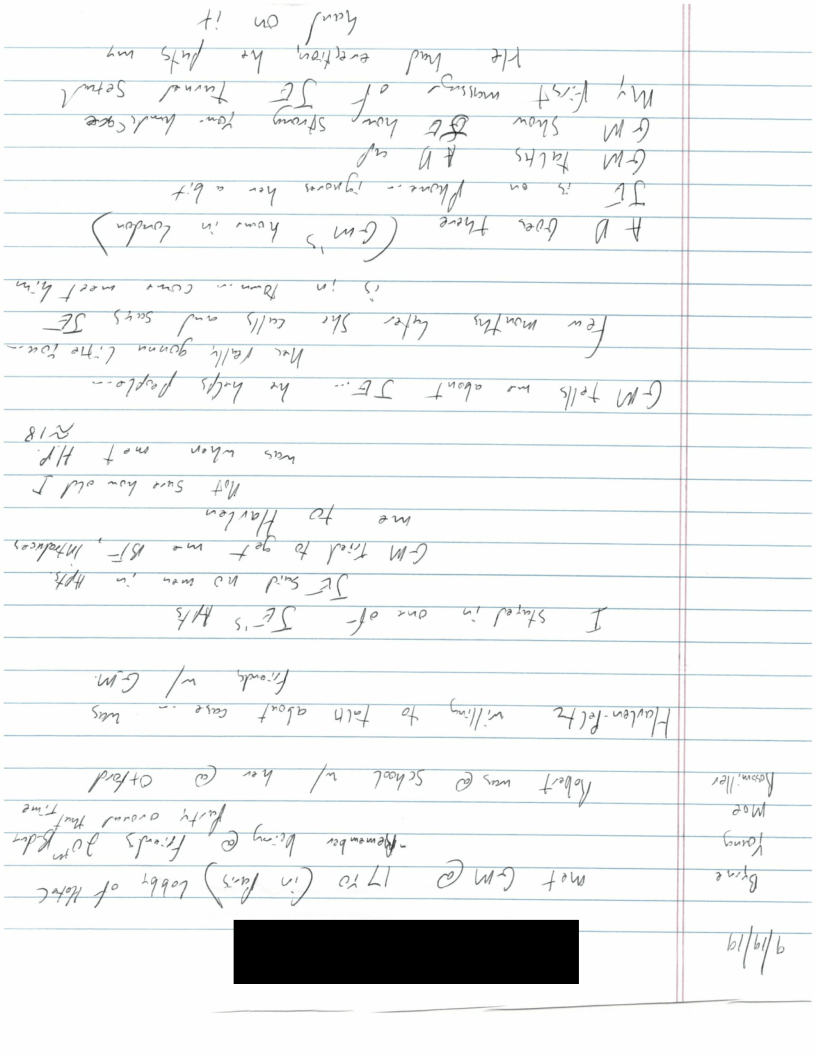 9/19/19
Byrne
Young
Moe
Rossmiller
met GM @ 17 yo (in Paris) Lobby of Hotel
- Remember being @ Friend's 20th Bday
party around that time
Robert was @ school w/ her @ Oxford
Havlen-Peltz willing to talk about case... was
friends w/ G.M.
I stayed in one of JE's Apts
JE said no men in Apts.
GM tried to get me BF, introduces
me to Havlen
Not sure how old I
was when met H.P.
≈ 18
GM tells me about JE... he helps people...
He's really gonna like you...
Few months later she calls and says JE
is in town... come meet him
A D Goes there (GM's home in London)
JE is on phone... ignores her a bit
GM talks A D up
GM show JE how strong your hands are
My First massage of JE turned sexual
He had erection, he puts my
hand on it